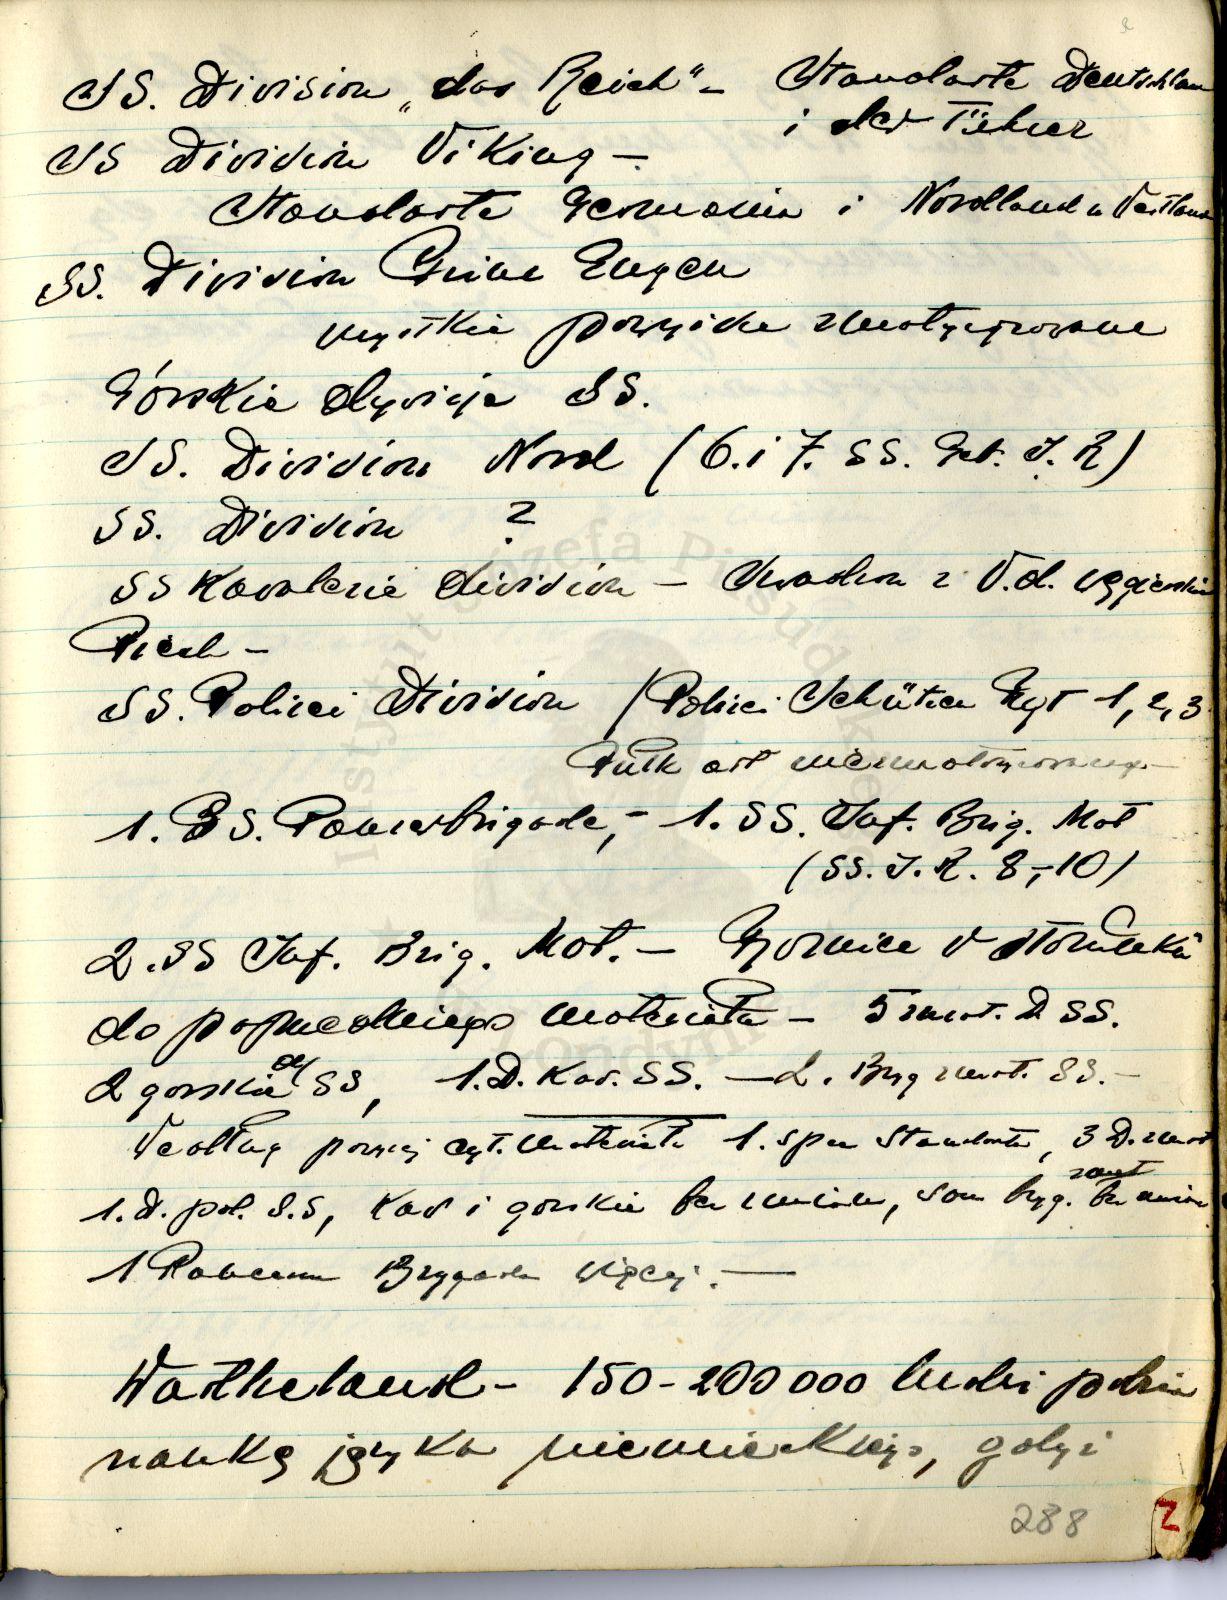 SS. Division „das Reich" – Standarte Deutschlan
i der Führer
SS Division Viking –
Standarte Germania i Nordland u Vestland
SS. Division Prinz Eugen
wszystkie powyższe zmotoryzowane
Górskie dywizje SS.
SS. Division Nord (6. i 7. SS. Geb. J. R)
SS. Division ?
SS Kavalerie Division – z V.d. węgierskie
Riesch –
SS. Polizei Division / Polizei Schützen Rgt 1, 2, 3
Pułk art niezmotoryzowany –
1. SS. Panzerbrigade, – 1. SS. Inf. Brig. Mot
(SS. J. R. 8, – 10)
2. SS Inf. Brig. Mot. – w stosunku
do poprzedniego materiału – 5 zmot. D SS.
2 górskie dyw SS, 1. D. Kav. SS. – 2. Bryg zmot. SS. –
Według powyżej cyt. materiału 1. Standarte, 3 D. zmot
1. D. pol. S.S, Kav i górskie bez zmian, bryg. zmot bez zmian
1 Pancerna Brygada więcej. –
Watheland – 150 – 200 000 ludzi pobiera
naukę języka niemieckiego, gdyż
288
Z
Instytut Józefa Piłsudskiego
w Londynie